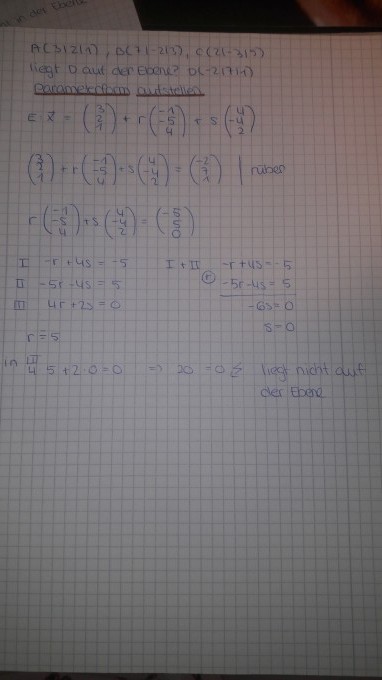 in der Ebene
A(3|2|1), B(7|-2|3), C(2|-3|5)
liegt D auf der Ebene? D(-2|7|1)
Parameterform aufstellen
E: x⃗ = (3 2 1) + r (-1 -5 4) + s (4 -4 2)
(3 2 1) + r (-1 -5 4) + s (4 -4 2) = (-2 7 1) | rüber
r (-1 -5 4) + s (4 -4 2) = (-5 5 0)
I -r + 4s = -5 I + II -r + 4s = -5
II -5r - 4s = 5 -5r - 4s = 5
III 4r + 2s = 0 -6s = 0
s = 0
r = 5
in III
4 · 5 + 2 · 0 = 0 => 20 = 0 liegt nicht auf
der Ebene